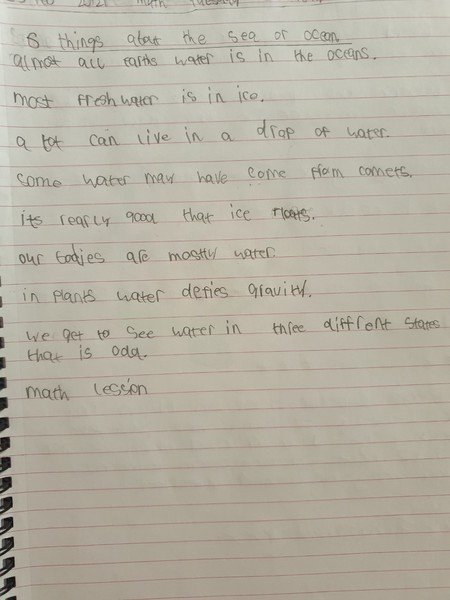 2021 math Tuesday
8 things about the sea or ocean
almost all earths water is in the oceans.
most freshwater is in ice.
a lot can live in a drop of water.
some water may have come from comets.
its really good that ice floats.
our bodies are mostly water.
in plants water defies gravity.
we get to see water in three diffrent states
that is odd.
math lession